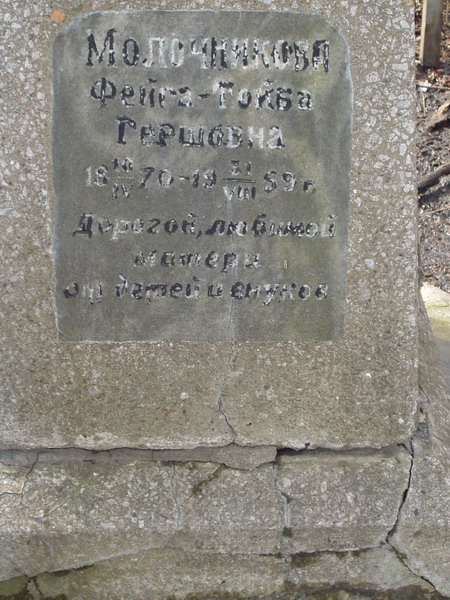 Молочникова
Фейга-Тойба
Гершовна
18 18/IV 70-19 31/VIII 59 г.
Дорогой, любимой
матери
от детей и внуков